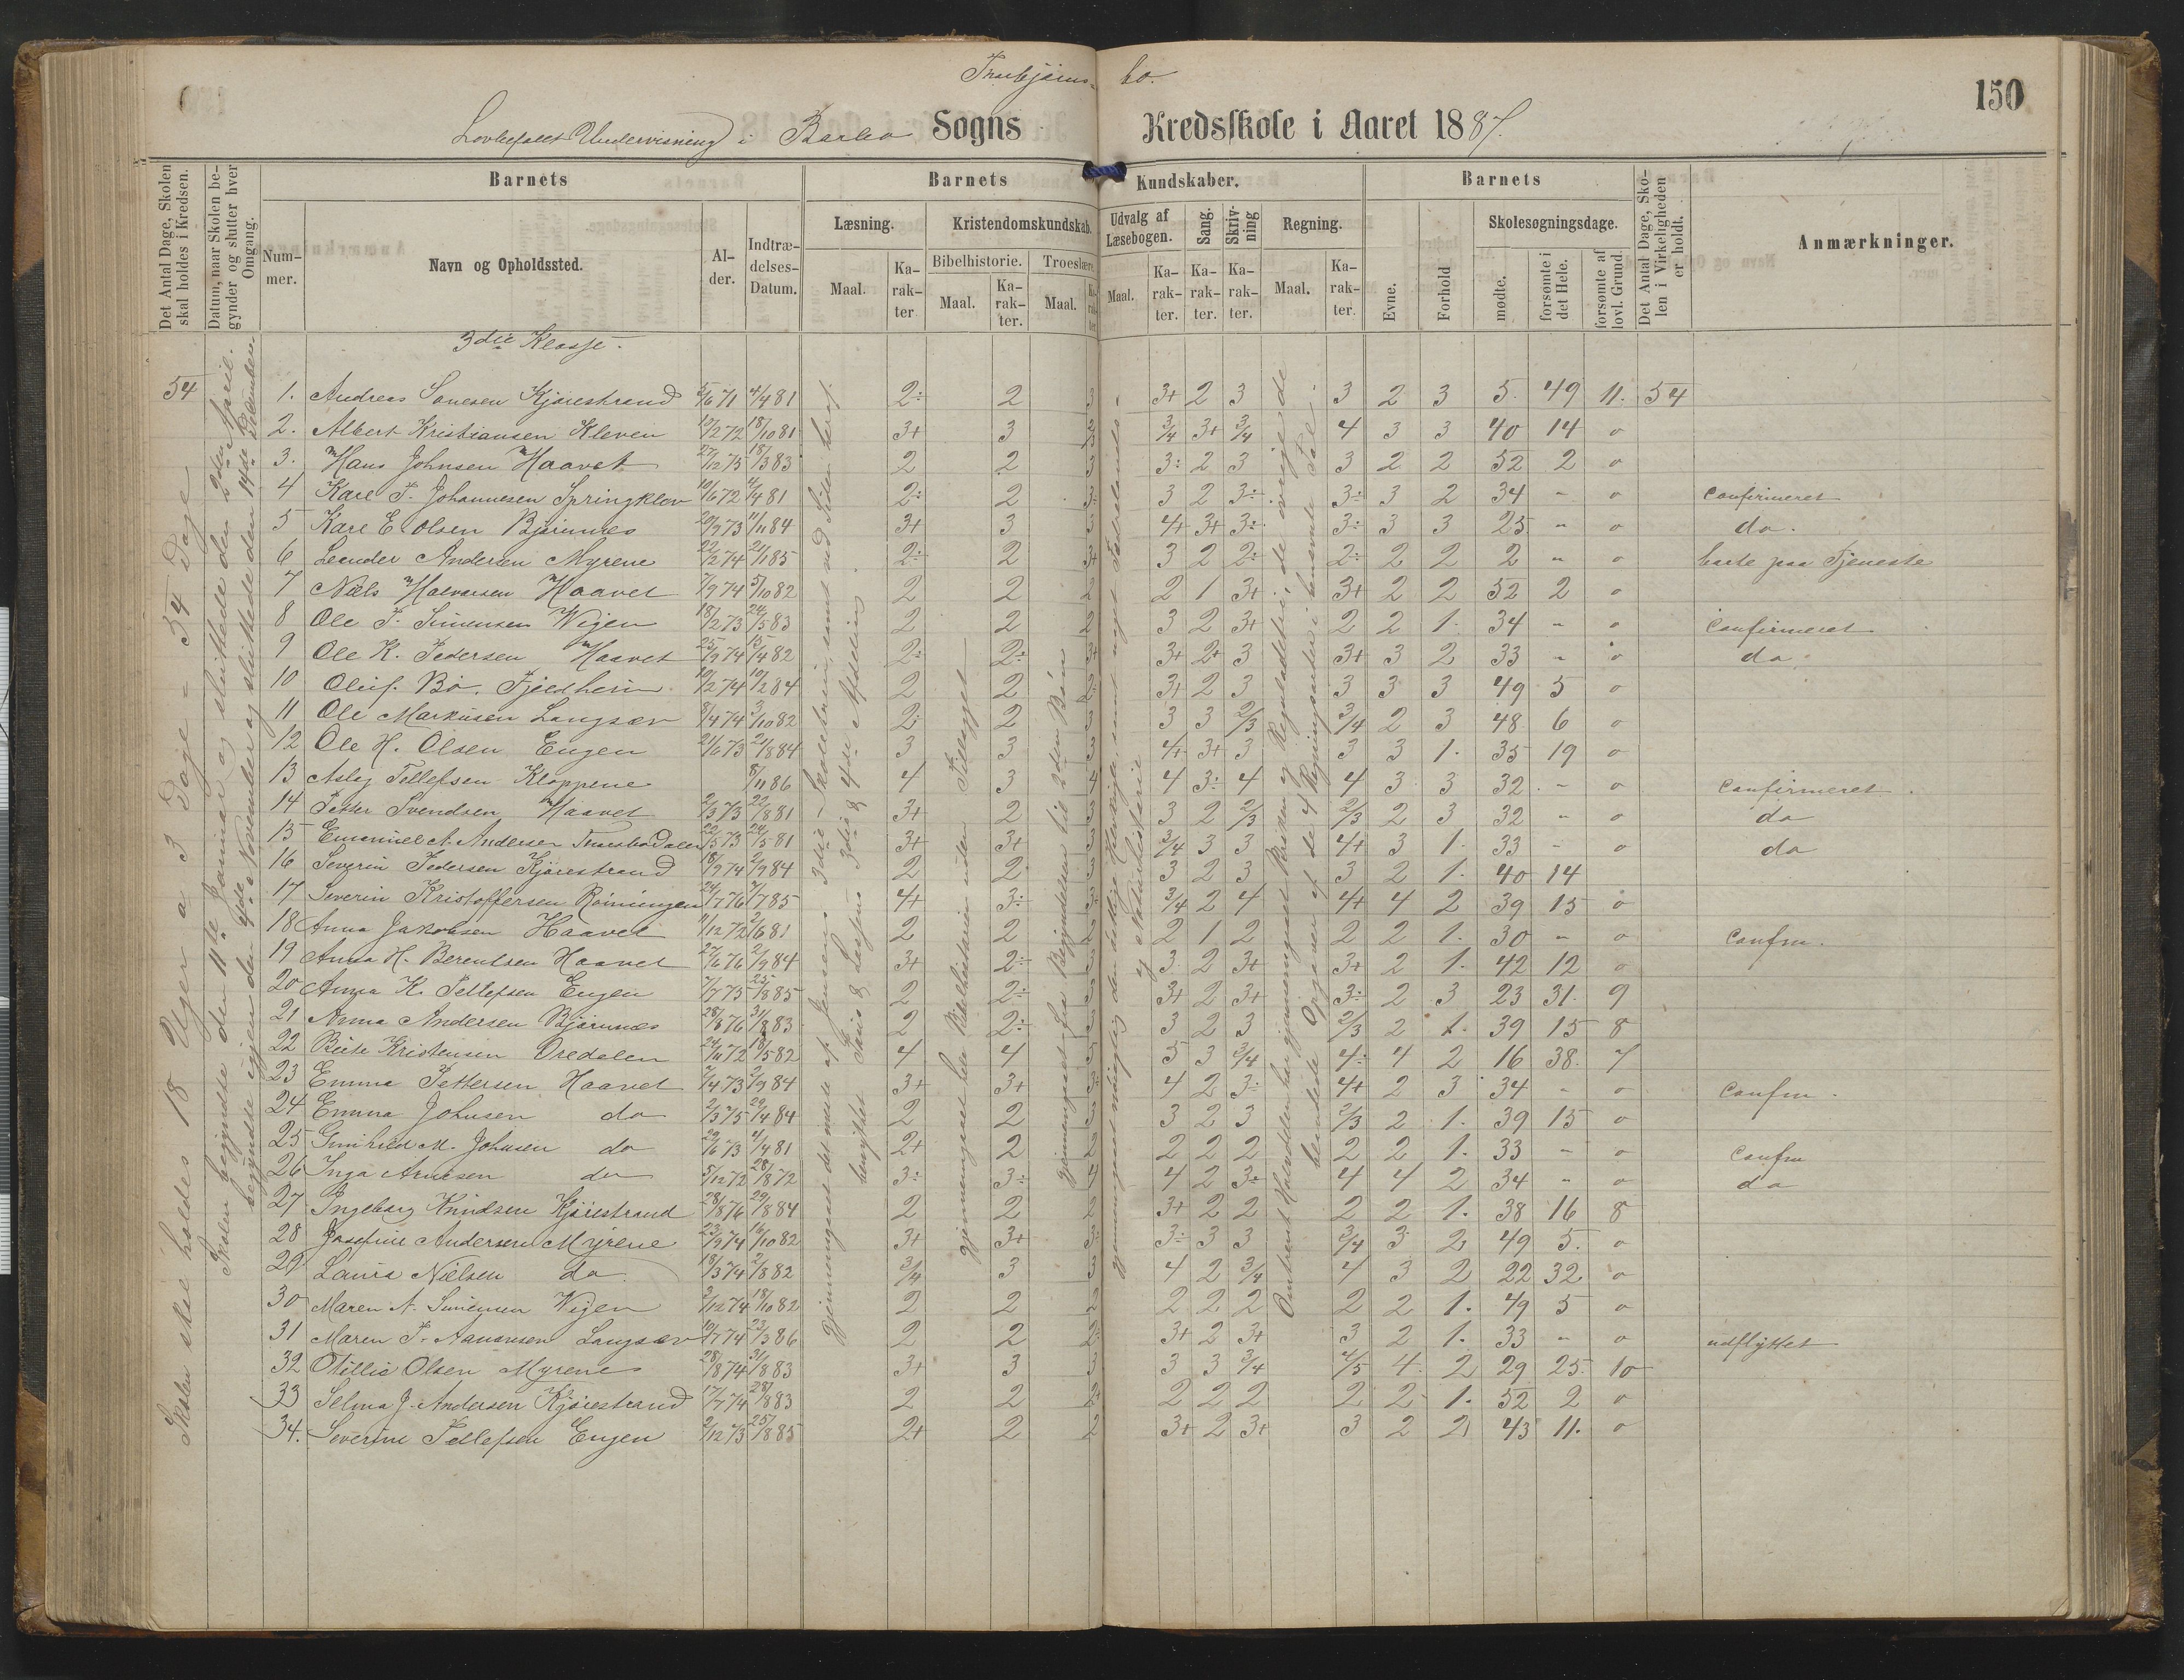 bo.
150
Lovbefalet Undervisning i Barbo Sogns Kredsskole i Aaret 1887.
Det Antal Dage, Skolen skal holdes i Kredsen.
Datum, naar Skolen begynder og slutter hver Omgang.
Barnets
Barnets Kundskaber.
Barnets
Det Antal Dage, Skolen i Virkeligheden er holdt.
Anmærkninger.
Nummer.
Navn og Opholdssted.
Alder.
Indtrædelses-Datum.
Læsning.
Kristendomskundskab.
Udvalg af Læsebogen.
Sang.
Skrivning
Regning.
Evne.
Forhold
Skolesøgningsdage.
Maal.
Karakter
Bibelhistorie.
Troeslære.
Maal.
Karakter.
Maal.
Karakter
Maal.
Karakter.
Karakter.
Karakter.
Maal.
Karakter.
mødte.
forsømte i det Hele.
forsømte af lovl. Grund.
3die Klasse.
Skolen skal holdes 18 Uger a 3 Dage = 54 Dage
Skolen begyndte den 11te Januar og sluttede den 2den April.
begyndte igjen den 4de November og sluttede den 14de December
54 1. Andreas Kjørestrand 5/6 71 4/4 81 2÷ 2 3 3+ 2 3 3 2 3 5 49 11. 54
2. Albert Kristiansen Kleven 12/2 72 18/10 81 3+ 3 3/4 3+ 3/4 4 3 3 40 14 o
3. Hans Johnsen Haavet 27/12 75 18/3 83 2 2 3 3÷ 2 3 3 2 2 52 2 o
4 Karl T. Johannesen Springklev 10/6 72 4/4 81 2÷ 2 3÷ 3 2 3÷ 3÷ 3 2 34 - o Confirmeret
5 Karl E Olsen Bjørnnes 20/9 73 11/11 84 3+ 3 3 4+ 3+ 3÷ 3÷ 3 3 25 - o do.
6 Leander Andersen Myrene 22/2 74 21/1 85 2÷ 2 3+ 3 2 2÷ 2÷ 2 2 2 - o borte paa Tjeneste
7 Niels Halvorsen Haavet 7/9 74 5/10 82 2 2 2 2 1 3+ 3+ 2 2 52 2 o
8 Ole T. Simensen Wigen 18/2 73 24/5 83 2 2 2 3 2 3+ 2 2 1. 34 - o Confirmeret
9 Ole K. Pedersen Haavet 25/9 74 15/4 82 2÷ 2÷ 3+ 3+ 2+ 3 3+ 3 2 33 - o do
10 Oluf. Bø. Fjeldheim 10/2 74 10/2 84 2 2 2÷ 3+ 2 3 3 3 3 49 5 o
11 Ole Markusen Langsæv 8/4 74 3/10 82 2÷ 2 3 3 3 2/3 3/4 2 3 48 6 o
12 Ole H. Olsen Engen 21/6 73 21/8 84 3 3 3 4+ 3+ 3 3 3 1. 35 19 o
13 Aslag Tellefsen Kloppene 8/11 86 4 3 4 4 3÷ 4 4 3 3 32 - o Confirmeret.
14 Petter Svendsen Haavet 2/3 73 22/8 81 3+ 2 3 3 2 2/3 2/3 2 3 32 - o do
15 Emanuel A. Andersen 22/5 73 24/5 81 3+ 3+ 3 3/4 3 3 4+ 3 1. 33 - o do
16 Severin Pedersen Kjørestrand 18/9 74 2/9 84 2 2 3 3 2 3 3 2 1. 40 14
17 Severin Kristoffersen Rømingen 24/7 76 7/7 85 4+ 3÷ 3÷ 3/4 2 4 4+ 4 2 39 15 o
18 Anna Jakobsen Haavet 11/12 72 2/6 81 2 2 2 2 1 2 2 2 1. 30 - o Confm.
19 Anna H. Berentsen Haavet 27/6 76 2/9 84 3+ 2÷ 3 3 2 3+ 3+ 2 1. 42 12 o
20 Anna K. Tellefsen Engen 7/7 75 25/8 85 2 2÷ 3 3+ 2 3+ 3÷ 2 3 23 31. 9
21 Anna Andersen Bjørnnes 28/6 76 31/8 83 2 2÷ 3 3 2 3 2/3 2 1. 39 15 8
22 Beite Kristensen Øredalen 24/11 72 18/5 82 4 4 5 5 3 3/4 4÷ 4 2 16 38. 7
23 Emma Pettersen Haavet 7/4 73 2/9 84 3+ 3+ 3÷ 4 2 3÷ 4+ 2 3 34 - o Confm.
24 Emma Johnsen do 2/3 75 29/4 84 2 2 3 3 2 3 2/3 2 1. 39 15 o
25 Gunhild M. Johnsen do 29/6 73 4/4 81 2+ 2 2 2 2 2 2 2 1. 33 - o Confm
26 Inga Arnesen do 5/12 72 28/8 72 3÷ 3÷ 4 4 2 3÷ 4 4 2 34 - o do
27 Ingeborg Knudsen Kjørestrand 28/8 76 29/8 84 2 2 2 3+ 2 2 2 2 1. 38 16 8
28 Josefine Andersen Myrene 23/9 74 16/10 82 3+ 3+ 3÷ 3÷ 3 3 3/4 3 2 49 5. o
29 Laura Nielsen do. 18/3 74 2/8 82 3/4 3 3 4 2 3/4 4 3 2 22 32 o
30 Maren A. Simensen Wigen 2/12 74 18/10 82 2 2 2 2 2 2 2 2 1. 49 5 o
31 Maren T. Aanonsen Langsæv 10/7 74 23/3 86 2 2 2÷ 3+ 2 3+ 3 2 1. 33 - o udflyttet
32 Otillie Olsen Myrene 28/8 74 31/8 83 3+ 3 3 3 3 3/4 4/5 4. 2 29 25. 10
33 Selma J. Andersen Kjørestrand 17/7 74 28/8 83 2 2 2+ 2 2 2 2 2 1. 52 2 o
34. Severine Tellefsen Engen 2/12 73 25/8 85 2+ 2 2 3+ 2 3+ 3 2 2 43 11. o
gjennemgaaet det meste af Jensens 3die Skoletrin, samt ved Siden heraf
benyttet 3die & 4de Afdeling.
gjennemgaaet hele Bibelhistorien uden Tillægget
gjennemgaaet fra Begyndelsen til 2den Bøn
og Naturhistorie
Omtrent Halvdelen har gjennemgaaet Brøken og Reguladetri, de øvrige de
blandede Opgaver af de 4 Regningsarter i bensente Tal.